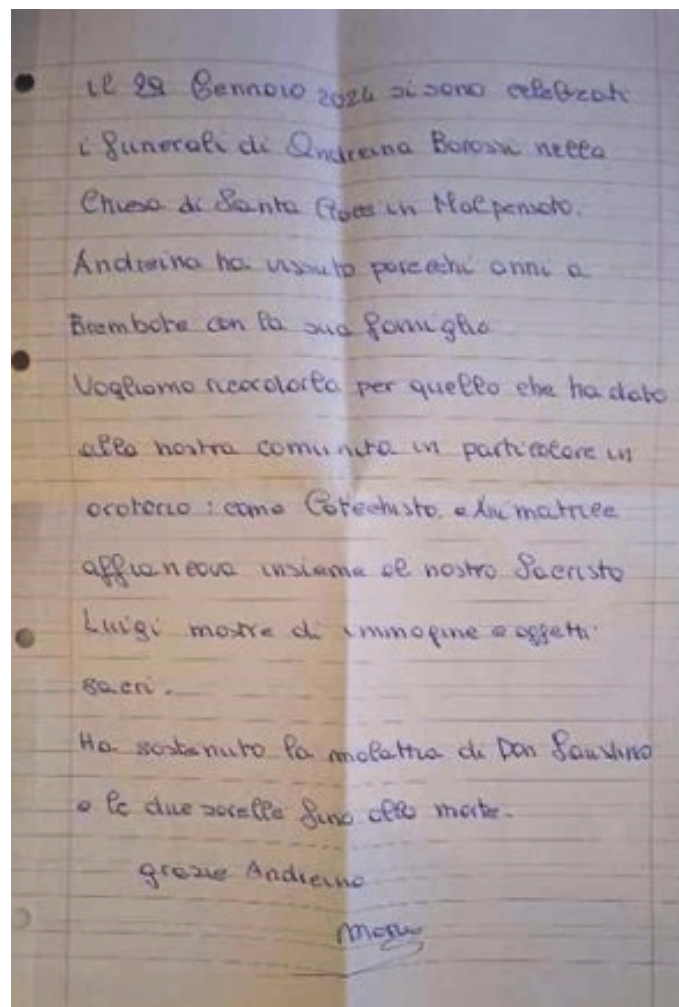 Il 29 Gennaio 2024 si sono celebrati
i funerali di Andreina Borossi nella
Chiesa di Santa Croce in Malpensata.
Andreina ha vissuto parecchi anni a
Brembate con la sua famiglia
Vogliamo ricordarla per quello che ha dato
alla nostra comunità in particolare in
oratorio: come Catechista e Animatrice
affiancava insieme al nostro Sacrista
Luigi mostre di immagine e oggetti
sacri.
Ha sostenuto la malattia di Don Faustino
e le due sorelle fino alla morte.
grazie Andreina